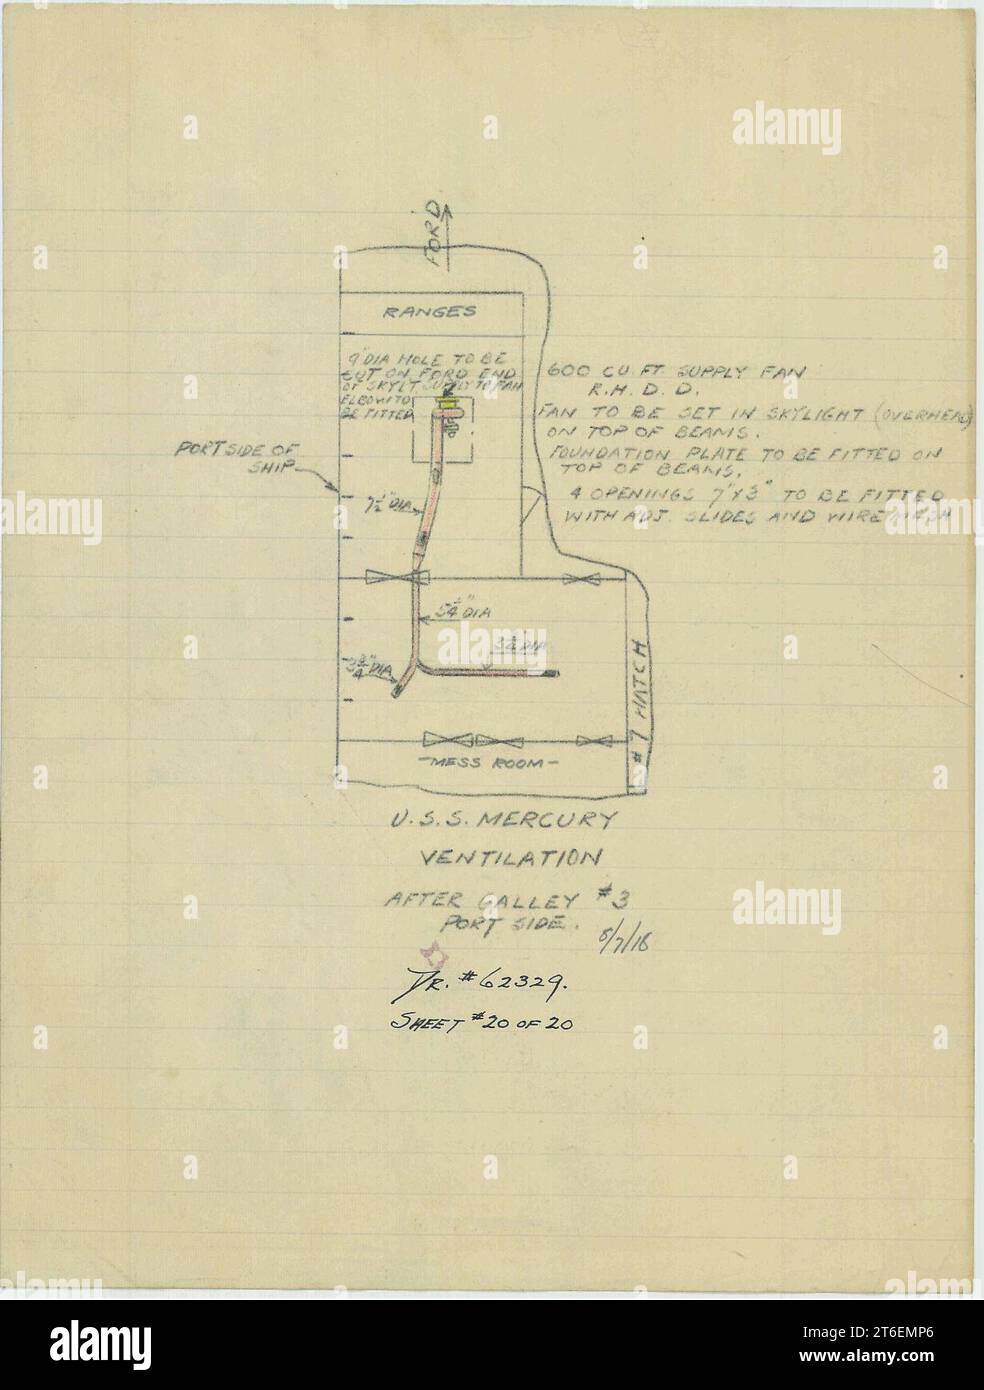 FOR'D
RANGES
9" DIA HOLE TO BE
CUT ON FORD END
OF SKYLT SUPPLY TO FAN
ELBOW TO
BE FITTED
600 CU. FT. SUPPLY FAN
R.H.D.D.
FAN TO BE SET IN SKYLIGHT (OVERHEAD)
ON TOP OF BEAMS.
FOUNDATION PLATE TO BE FITTED ON
TOP OF BEAMS.
4 OPENINGS 7" X 3" TO BE FITTED
WITH ADJ. SLIDES AND WIRE MESH
PORT SIDE OF
SHIP
7½" DIA
5¼" DIA
3¾" DIA
3¾" DIA
#7 HATCH
-MESS ROOM-
U.S.S. MERCURY
VENTILATION
AFTER GALLEY #3
PORT SIDE.
8/7/18
DR. #62329.
SHEET #20 OF 20
alamy
Image ID: 2T6EMP6
www.alamy.com